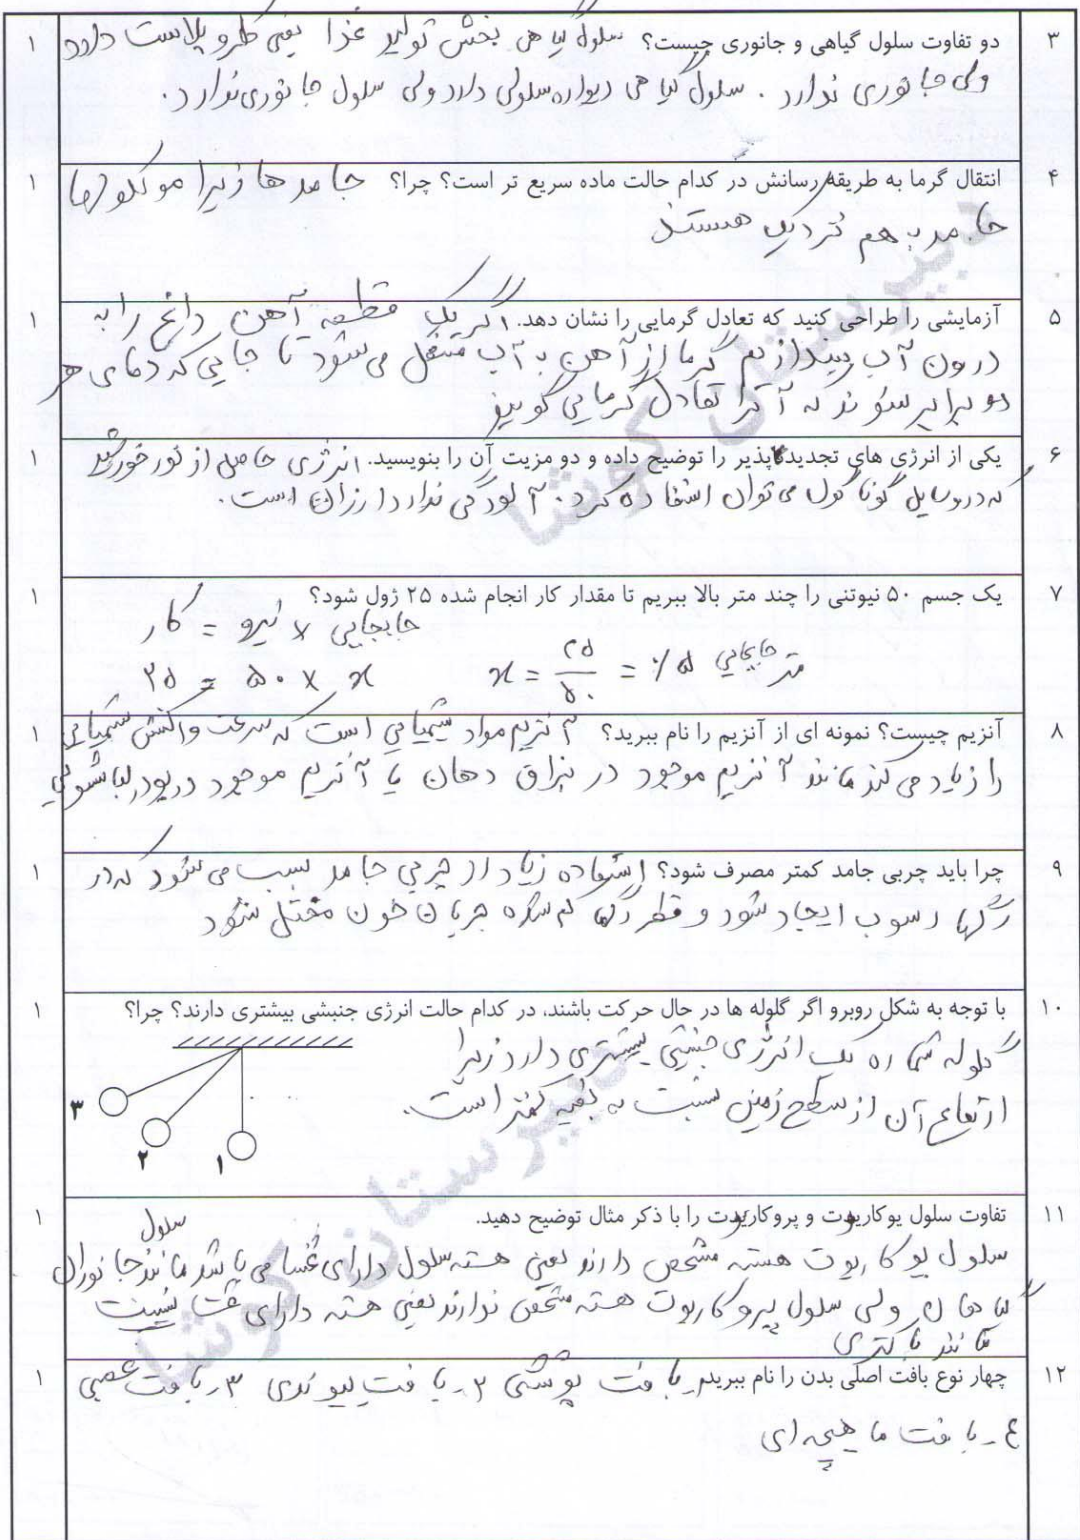 ۳ دو تفاوت سلول گیاهی و جانوری چیست؟ سلول گیاهی بخش تولید غذا یعنی کلروپلاست دارد ۱
ولی جانوری ندارد . سلول گیاهی دیواره سلولی دارد ولی سلول جانوری ندارد.
۴ انتقال گرما به طریقه رسانش در کدام حالت ماده سریع تر است؟ چرا؟ جامدها زیرا مولکولها ۱
جامد به هم نزدیک هستند
۵ آزمایشی را طراحی کنید که تعادل گرمایی را نشان دهد. اگر یک قطعه آهن داغ را به ۱
درون آب بیندازیم گرما از آهن به آب منتقل می شود تا جایی که دمای هر
دو برابر شوند که آنرا تعادل گرمایی گوییم
۶ یکی از انرژی های تجدیدپذیر را توضیح داده و دو مزیت آن را بنویسید. انرژی حاصل از نور خورشید ۱
که در وسایل گوناگون می توان استفاده کرد. آلودگی ندارد ارزان است.
۷ یک جسم ۵۰ نیوتنی را چند متر بالا ببریم تا مقدار کار انجام شده ۲۵ ژول شود؟ ۱
جابجایی × نیرو = کار
۲۵ = ۵۰ × x x = ۲۵/۵۰ = ۰/۵ متر جابجایی
۸ آنزیم چیست؟ نمونه ای از آنزیم را نام ببرید؟ آنزیم مواد شیمیایی است که سرعت واکنش شیمیایی ۱
را زیاد می کند مانند آنزیم موجود در بزاق دهان یا آنزیم موجود در پودر لباسشویی
۹ چرا باید چربی جامد کمتر مصرف شود؟ استفاده زیاد از چربی جامد سبب می شود که در ۱
رگها رسوب ایجاد شود و قطر رگها کم شده جریان خون مختل شود
۱۰ با توجه به شکل روبرو اگر گلوله ها در حال حرکت باشند، در کدام حالت انرژی جنبشی بیشتری دارند؟ چرا؟ ۱
گلوله شماره یک انرژی جنبشی بیشتری دارد زیرا
ارتفاع آن از سطح زمین نسبت به بقیه کمتر است.
۳
۲
۱
۱۱ تفاوت سلول یوکاریوت و پروکاریوت را با ذکر مثال توضیح دهید. ۱
سلول
سلول یوکاریوت هسته مشخص دارند یعنی هسته سلول دارای غشا می باشد مانند جانوران
گیاهان ولی سلول پروکاریوت هسته مشخص ندارند یعنی هسته دارای غشا نیست
مانند باکتری
۱۲ چهار نوع بافت اصلی بدن را نام ببرید ۱ـ بافت پوششی ۲ـ بافت پیوندی ۳ـ بافت عصبی ۱
۴ـ بافت ماهیچه ای
دبیرستان کوشا
دبیرستان کوشا